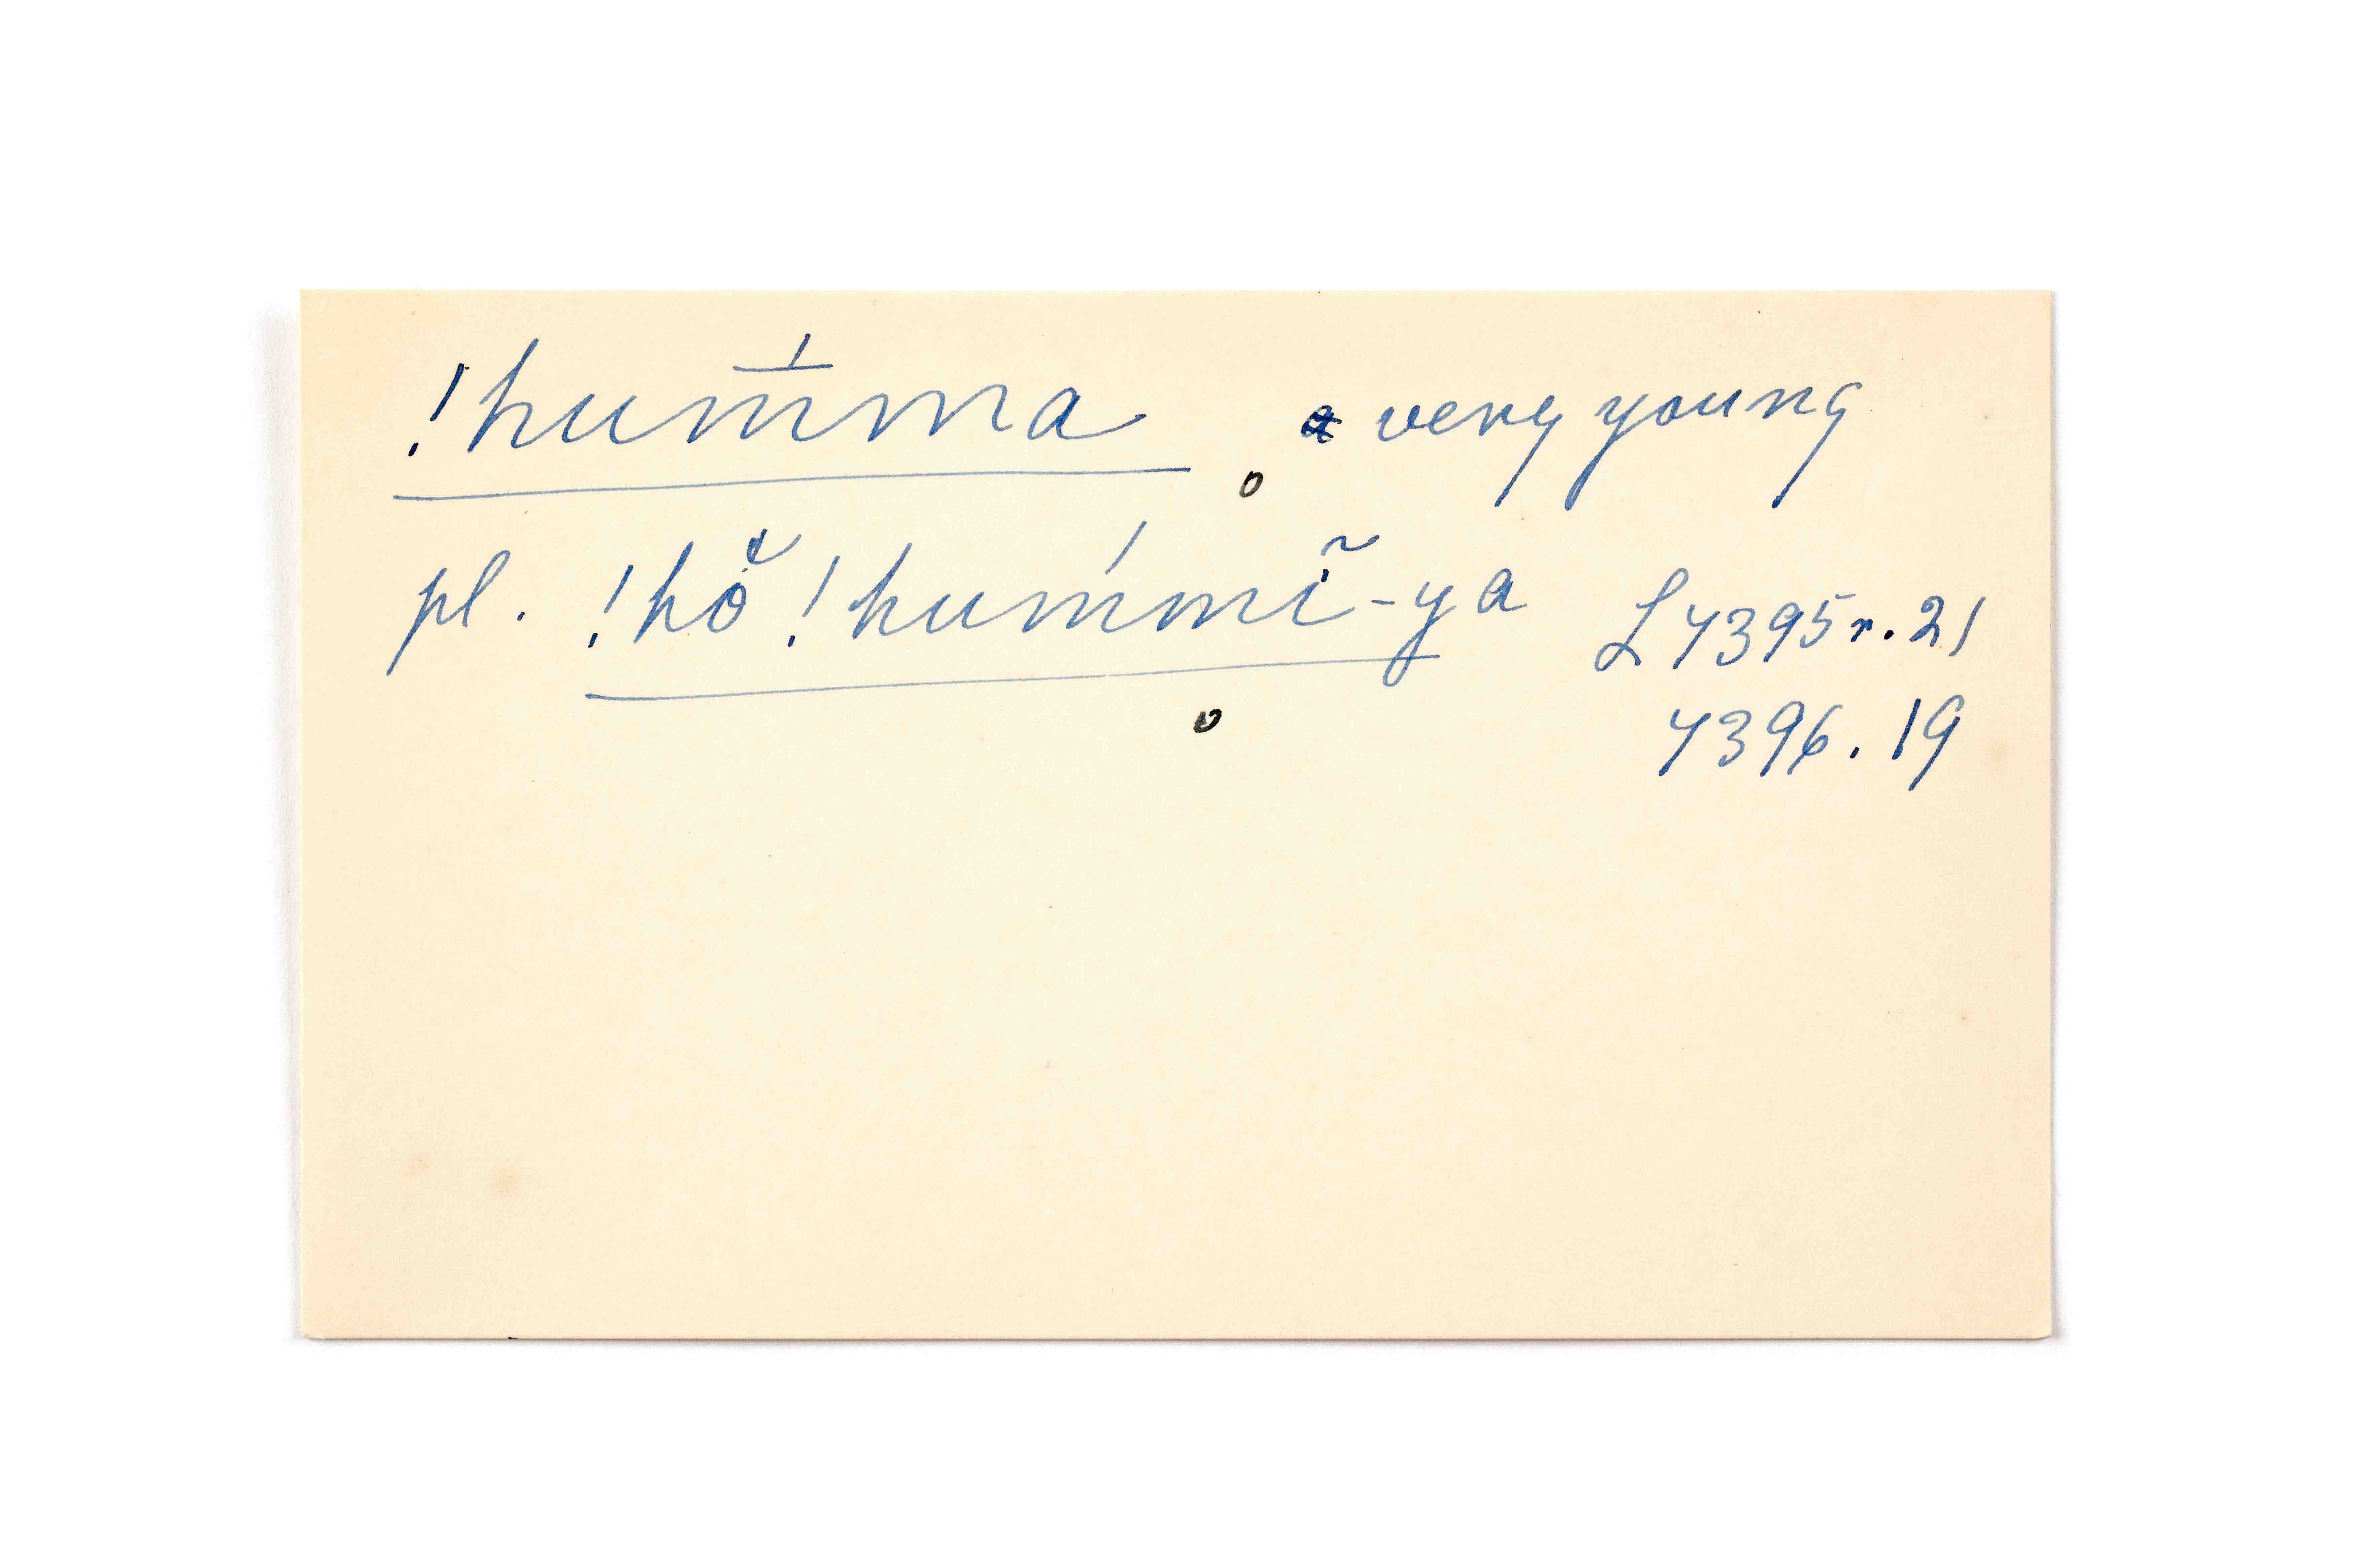 !hum̄́ma very young
pl. !hŏ́ !humḿĩ-ya L4395r.21
4396.19